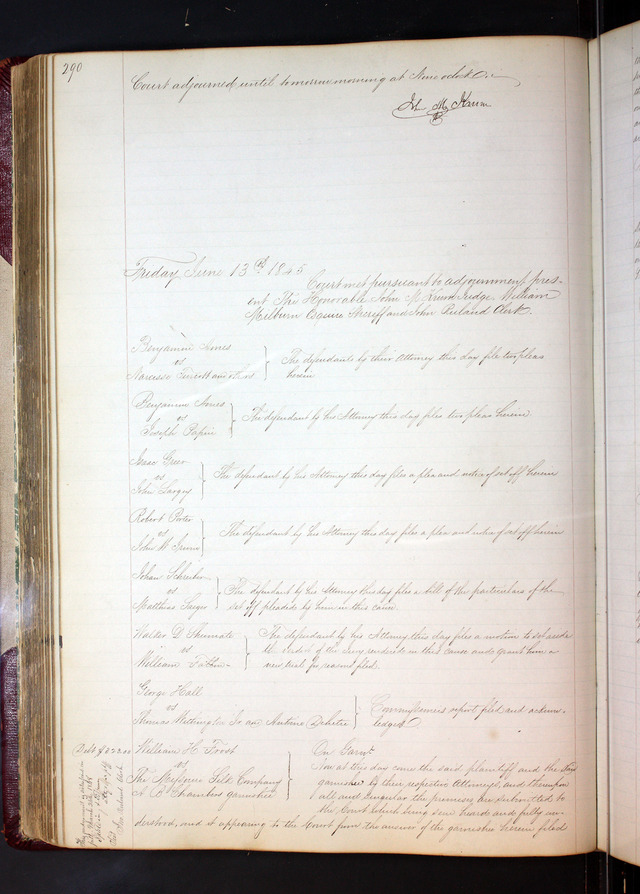 290
Court adjourned until tomorrow morning at Nine oclock.
Jn. M. Krum
Friday June 13th 1845
Court met pursuant to adjournment pres-
ent The Honorable John M Krum Judge William
Milburn Esquire Sheriff and John Ruland Clerk.
Benjamin
vs
Narcisse
The defendants by their Attorney this day file two pleas
herein
Benjamin
vs
Joseph Papin
The defendant by his Attorney this day files two pleas herein
Isaac Greer
vs
John
The defendant by his Attorney this day files a plea and notice of set off herein
Robert
vs
John
The defendant by his Attorney this day files a plea and notice of set off herein
Johan
vs
Matthias
The defendant by his Attorney this day files a bill of the particulars of the
set off pleaded by him in this cause.
Walder D. Shumate
vs
William
The defendant by his Attorney this day files a motion to set aside
the verdict of the Jury rendered in this cause and grant him a
new trial for reasons filed.
George Hall
vs
Thomas Withington and Antoine
Commissioners report filed and acknow-
ledged
William H. Frost
vs
The Missouri Silk Company
A B Chambers garnishee
On Garnt
Now at this day come the said plaintiff and the said
garnishee by their respective Attorneys, and thereupon
all and singular the premises are submitted to
the Court which being seen heard and fully un-
derstood, and it appearing to the Court from the answer of the garnishee herein filed